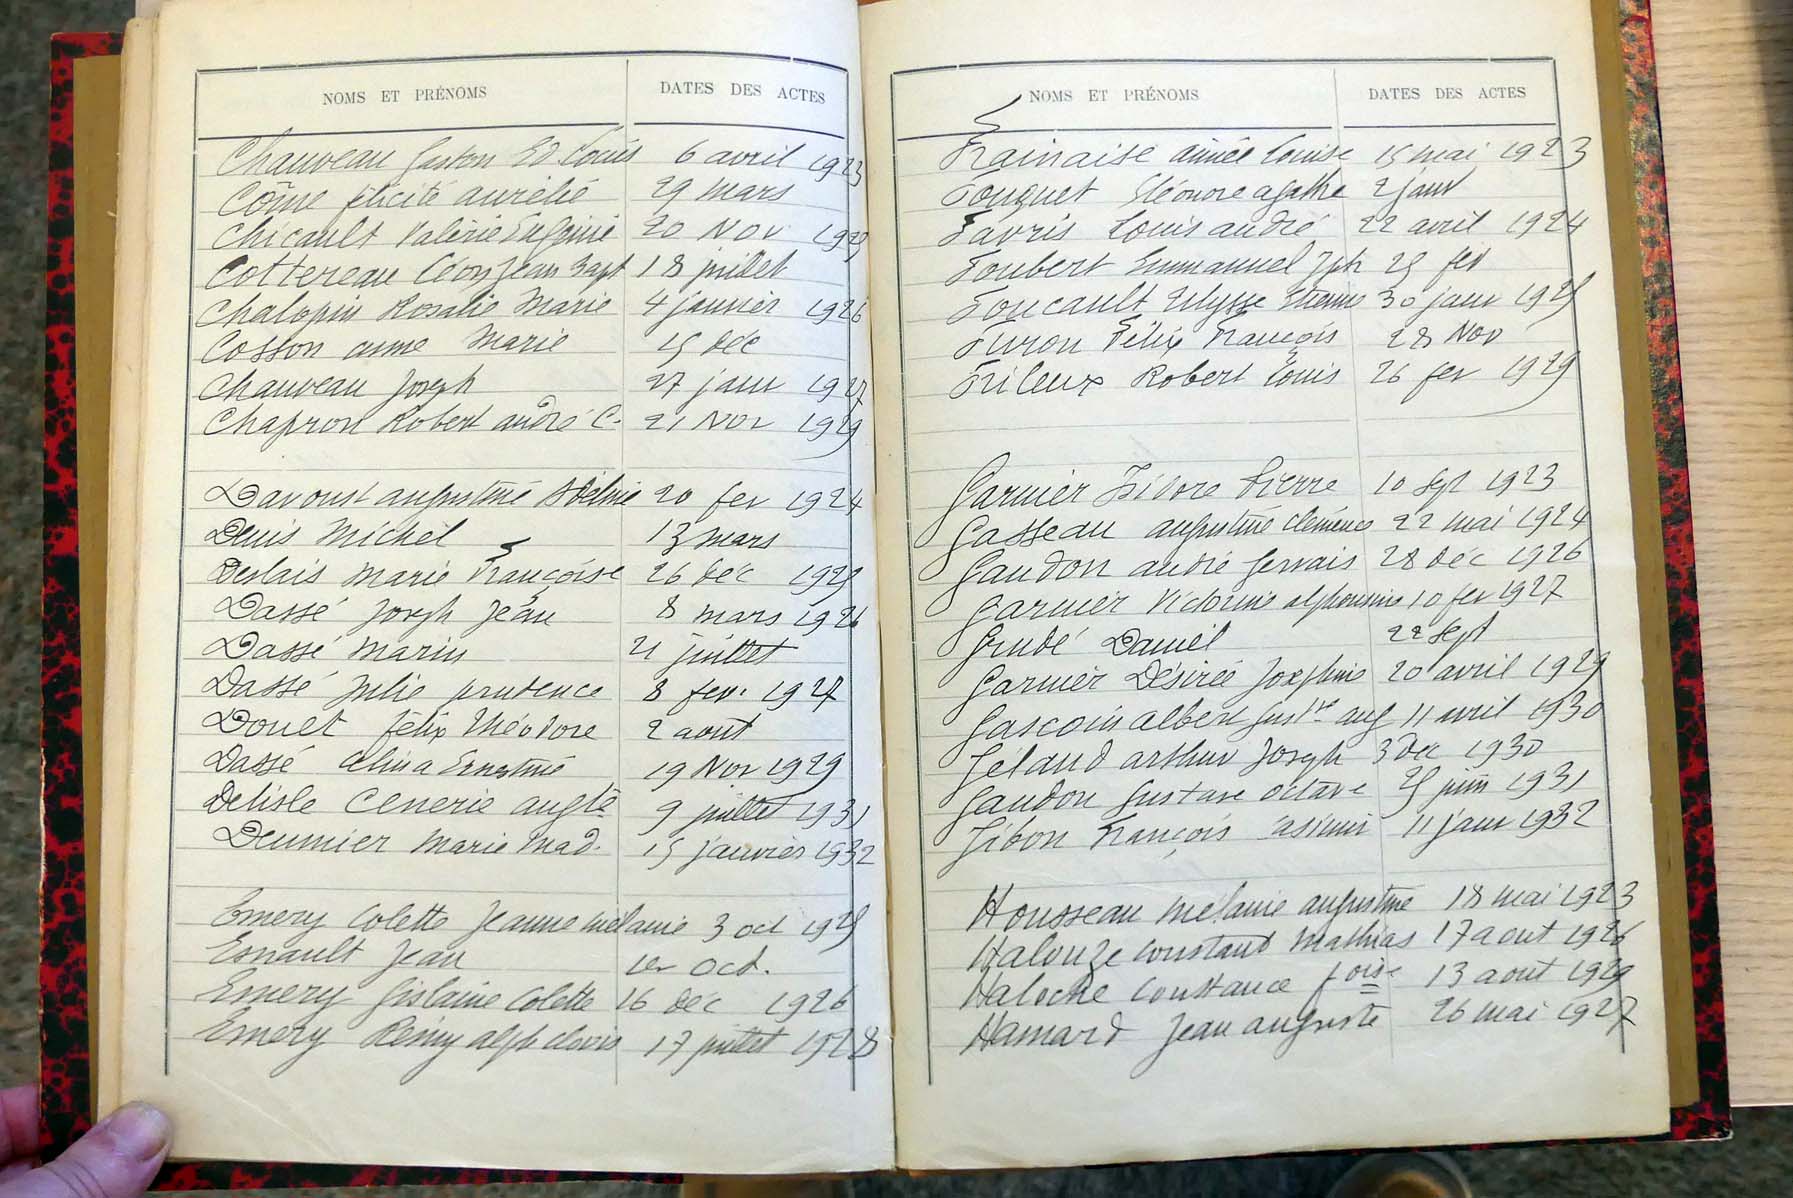 NOMS ET PRÉNOMS DATES DES ACTES
Chauveau Gaston Ed Louis 6 avril 1923
Côme félicité aurélie 29 mars
Chicault Valérie Eugénie 20 Nov
Cottereau Léon Jean Bapt 18 juillet
Chalopin Rosalie Marie 4 janvier 1926
Cosson anne Marie 15 déc
Chauveau Joseph 27 janv 1927
Chapron Robert andré C. 21 Nov 1929
Davoust augustine Adeline 20 fev 1924
Denis Michel 13 mars
Deslais Marie Françoise 26 déc 1925
Dassé Joseph Jean 8 mars 1926
Dassé Marin 21 juillet
Dassé Julie prudence 8 fev. 1927
Douet félix théodore 2 août
Dassé alina Ernestine 19 Nov 1929
Delisle Cenerie augte 9 juillet 1931
Deumier Marie Mad. 15 janvier 1932
Emery Colette Jeanne mélanie 3 oct 1925
Esnault Jean 1er oct.
Emery Gislaine Colette 16 déc 1926
Emery Rémy alph clovis 17 juillet 1928
NOMS ET PRÉNOMS DATES DES ACTES
Frainaise aimée Louise 15 mai 1923
Fouquet Eléonore agathe 2 janv
Favris Louis andré 22 avril 1924
Foubert Emmanuel Jph 25 fev
Foucault Ulysse Etienne 30 janv 1925
Furon Félix François 28 Nov
Frileux Robert Louis 26 fev 1929
Garnier Isidore Pierre 10 Sept 1923
Gasseau augustine clémence 22 mai 1924
Gaudon andré Gervais 28 déc 1926
Garnier Victorine alphonsine 10 fev 1927
Grudé Daniel 22 sept
Garnier Désirée Joséphine 20 avril 1929
Gascoin albert Gustve aug 11 avril 1930
Gélaud arthur Joseph 3 Déc 1930
Gaudon Gustave octave 25 juin 1931
Gibon François Casimir 11 janv 1932
Housseau mélanie augustine 18 mai 1923
Halouze Constant Mathias 17 aout 1926
Haloche Constance foise 13 aout 1929
Hamard Jean auguste 26 mai 1927